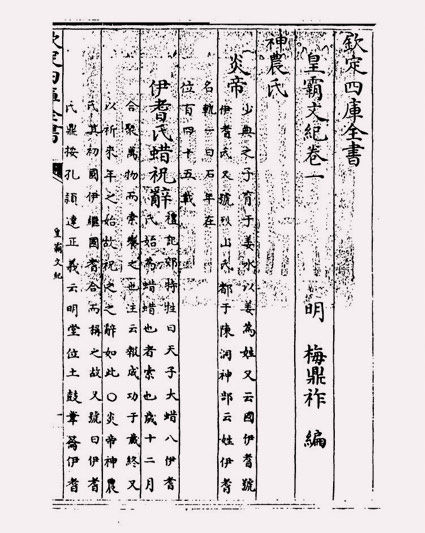 欽定四庫全書
皇霸文紀卷一
明 梅鼎祚 編
神農氏
炎帝
少典之子育于姜水以姜為姓又云國伊耆號
伊耆氏又號烈山氏都于陳洞神部云姓伊耆
名軌一曰石年在
位百四十五載
伊耆氏蜡祝辭
禮記郊特牲曰天子大蜡八伊耆
氏始為蜡蜡也者索也歲十二月
合聚萬物而索饗之也注云報成功于歲終又
以祈來年之始故祝之之辭如此○炎帝神農
氏其初國伊繼國耆合而稱之故又號曰伊耆
氏鼎按孔頴達正義云明堂位土鼓葦籥伊耆
欽定四庫全書
皇霸文紀